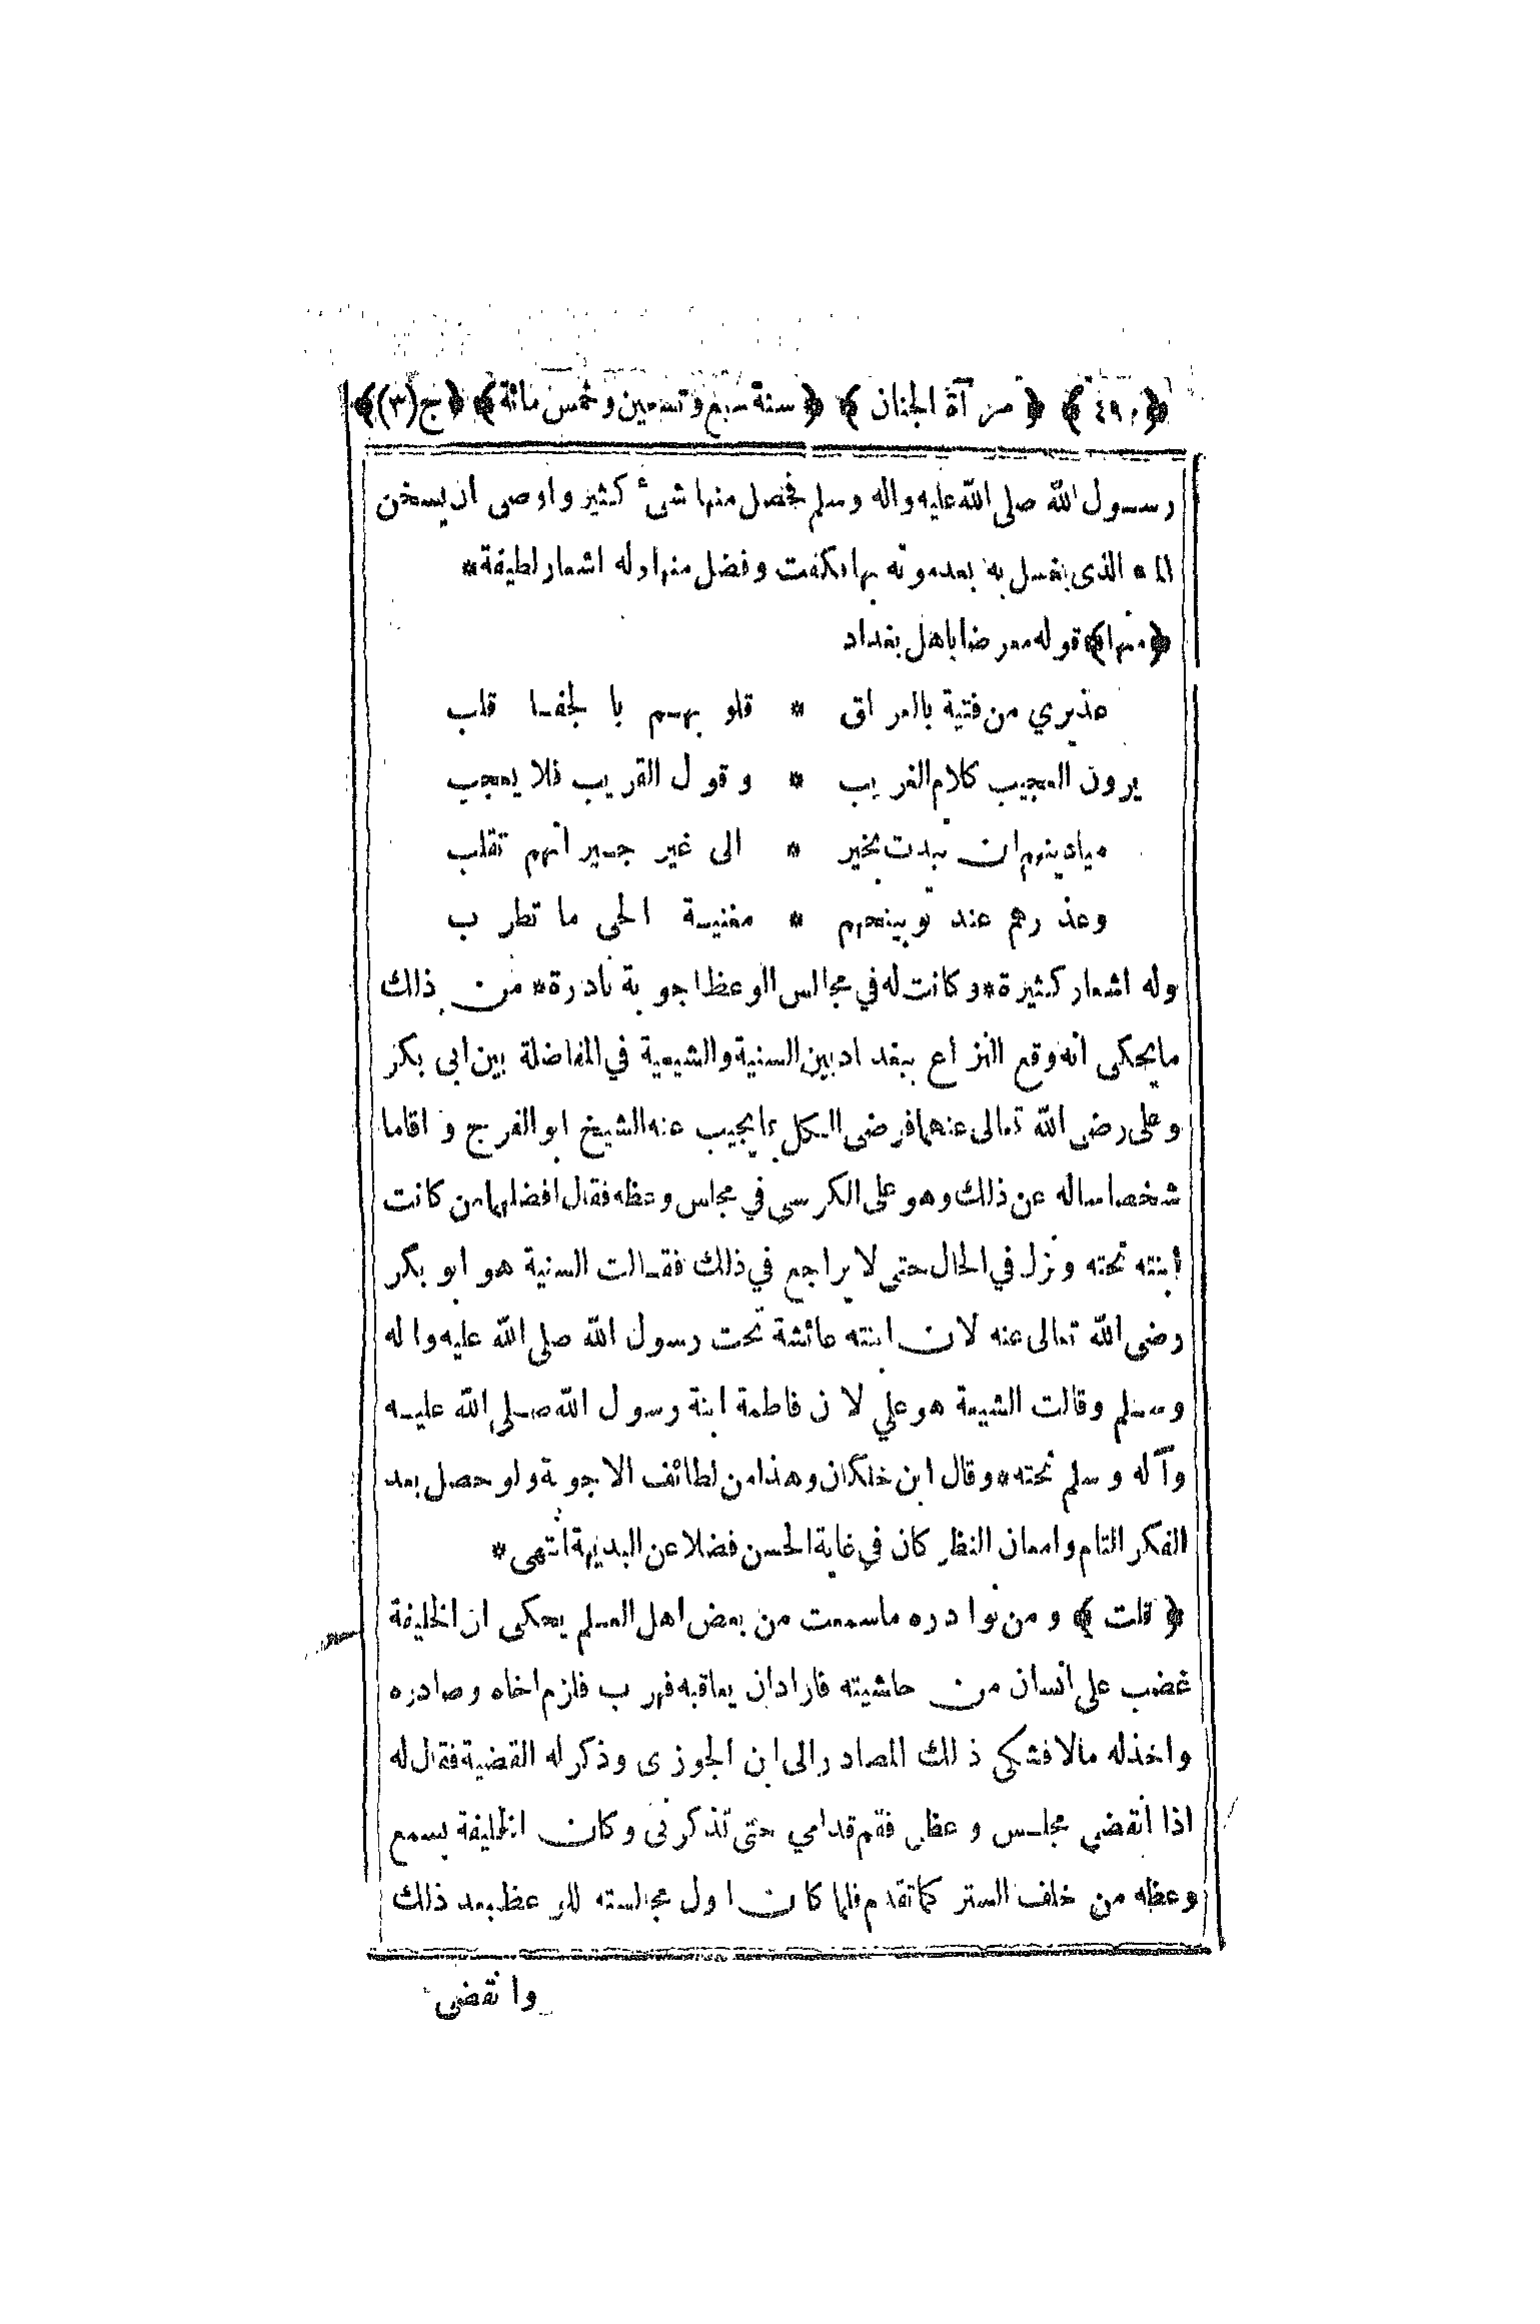 ﴿٤٩٠﴾ ﴿مرآة الجنان﴾ ﴿سنة سبع وتسعين وخمس مائة﴾ ﴿ج(٣)﴾
رسول الله صلى الله عليه واله وسلم فحصل منها شىء كثير واوصى ان يسخن
الماء الذى يغسل به بعد موته بها فكفت وفضل منها وله اشعار لطيفة*
﴿منها﴾ قوله معرضا باهل بغداد
عذيري من فتية بالعراق * قلوبهم بالجفا قلب
يرون العجيب كلام الغريب * وقول القريب فلا يعجب
ميادينهم ان تبدت بخير * الى غير جيرانهم تقلب
وعذرهم عند توبيخهم * مغنية الحى ما تطرب
وله اشعار كثيرة* وكانت له في مجالس الوعظ اجوبة نادرة* من ذلك
ما يحكى انه وقع النزاع ببغداد بين السنية والشيعية في المفاضلة بين ابى بكر
وعلى رضى الله تعالى عنهما فرضى الكل بما يجيب عنه الشيخ ابو الفرج واقاما
شخصا ساله عن ذلك وهو على الكرسي في مجلس وعظه فقال افضلهما من كانت
ابنته تحته ونزل في الحال حتى لا يراجع في ذلك فقالت السنية هو ابو بكر
رضى الله تعالى عنه لان ابنته عائشة تحت رسول الله صلى الله عليه واله
وسلم وقالت الشيعة هو علي لان فاطمة ابنة رسول الله صلى الله عليه
وآله وسلم تحته* وقال ابن خلكان وهذا من لطائف الاجوبة ولو حصل بعد
الفكر التام وامعان النظر كان في غاية الحسن فضلا عن البديهة انتهى*
﴿قلت﴾ ومن نوادره ما سمعت من بعض اهل العلم يحكى ان الخليفة
غضب على انسان من حاشيته فاراد ان يعاقبه فهرب فلزم اخاه وصادره
واخذ له مالا فشكى ذلك المصادر الى ابن الجوزى وذكر له القضية فقال له
اذا انقضى مجلس وعظى فقم قدامي حتى تذكرنى وكان الخليفة يسمع
وعظه من خلف الستر كما تقدم فلما كان اول مجالسته للوعظ بعد ذلك
وانقضى